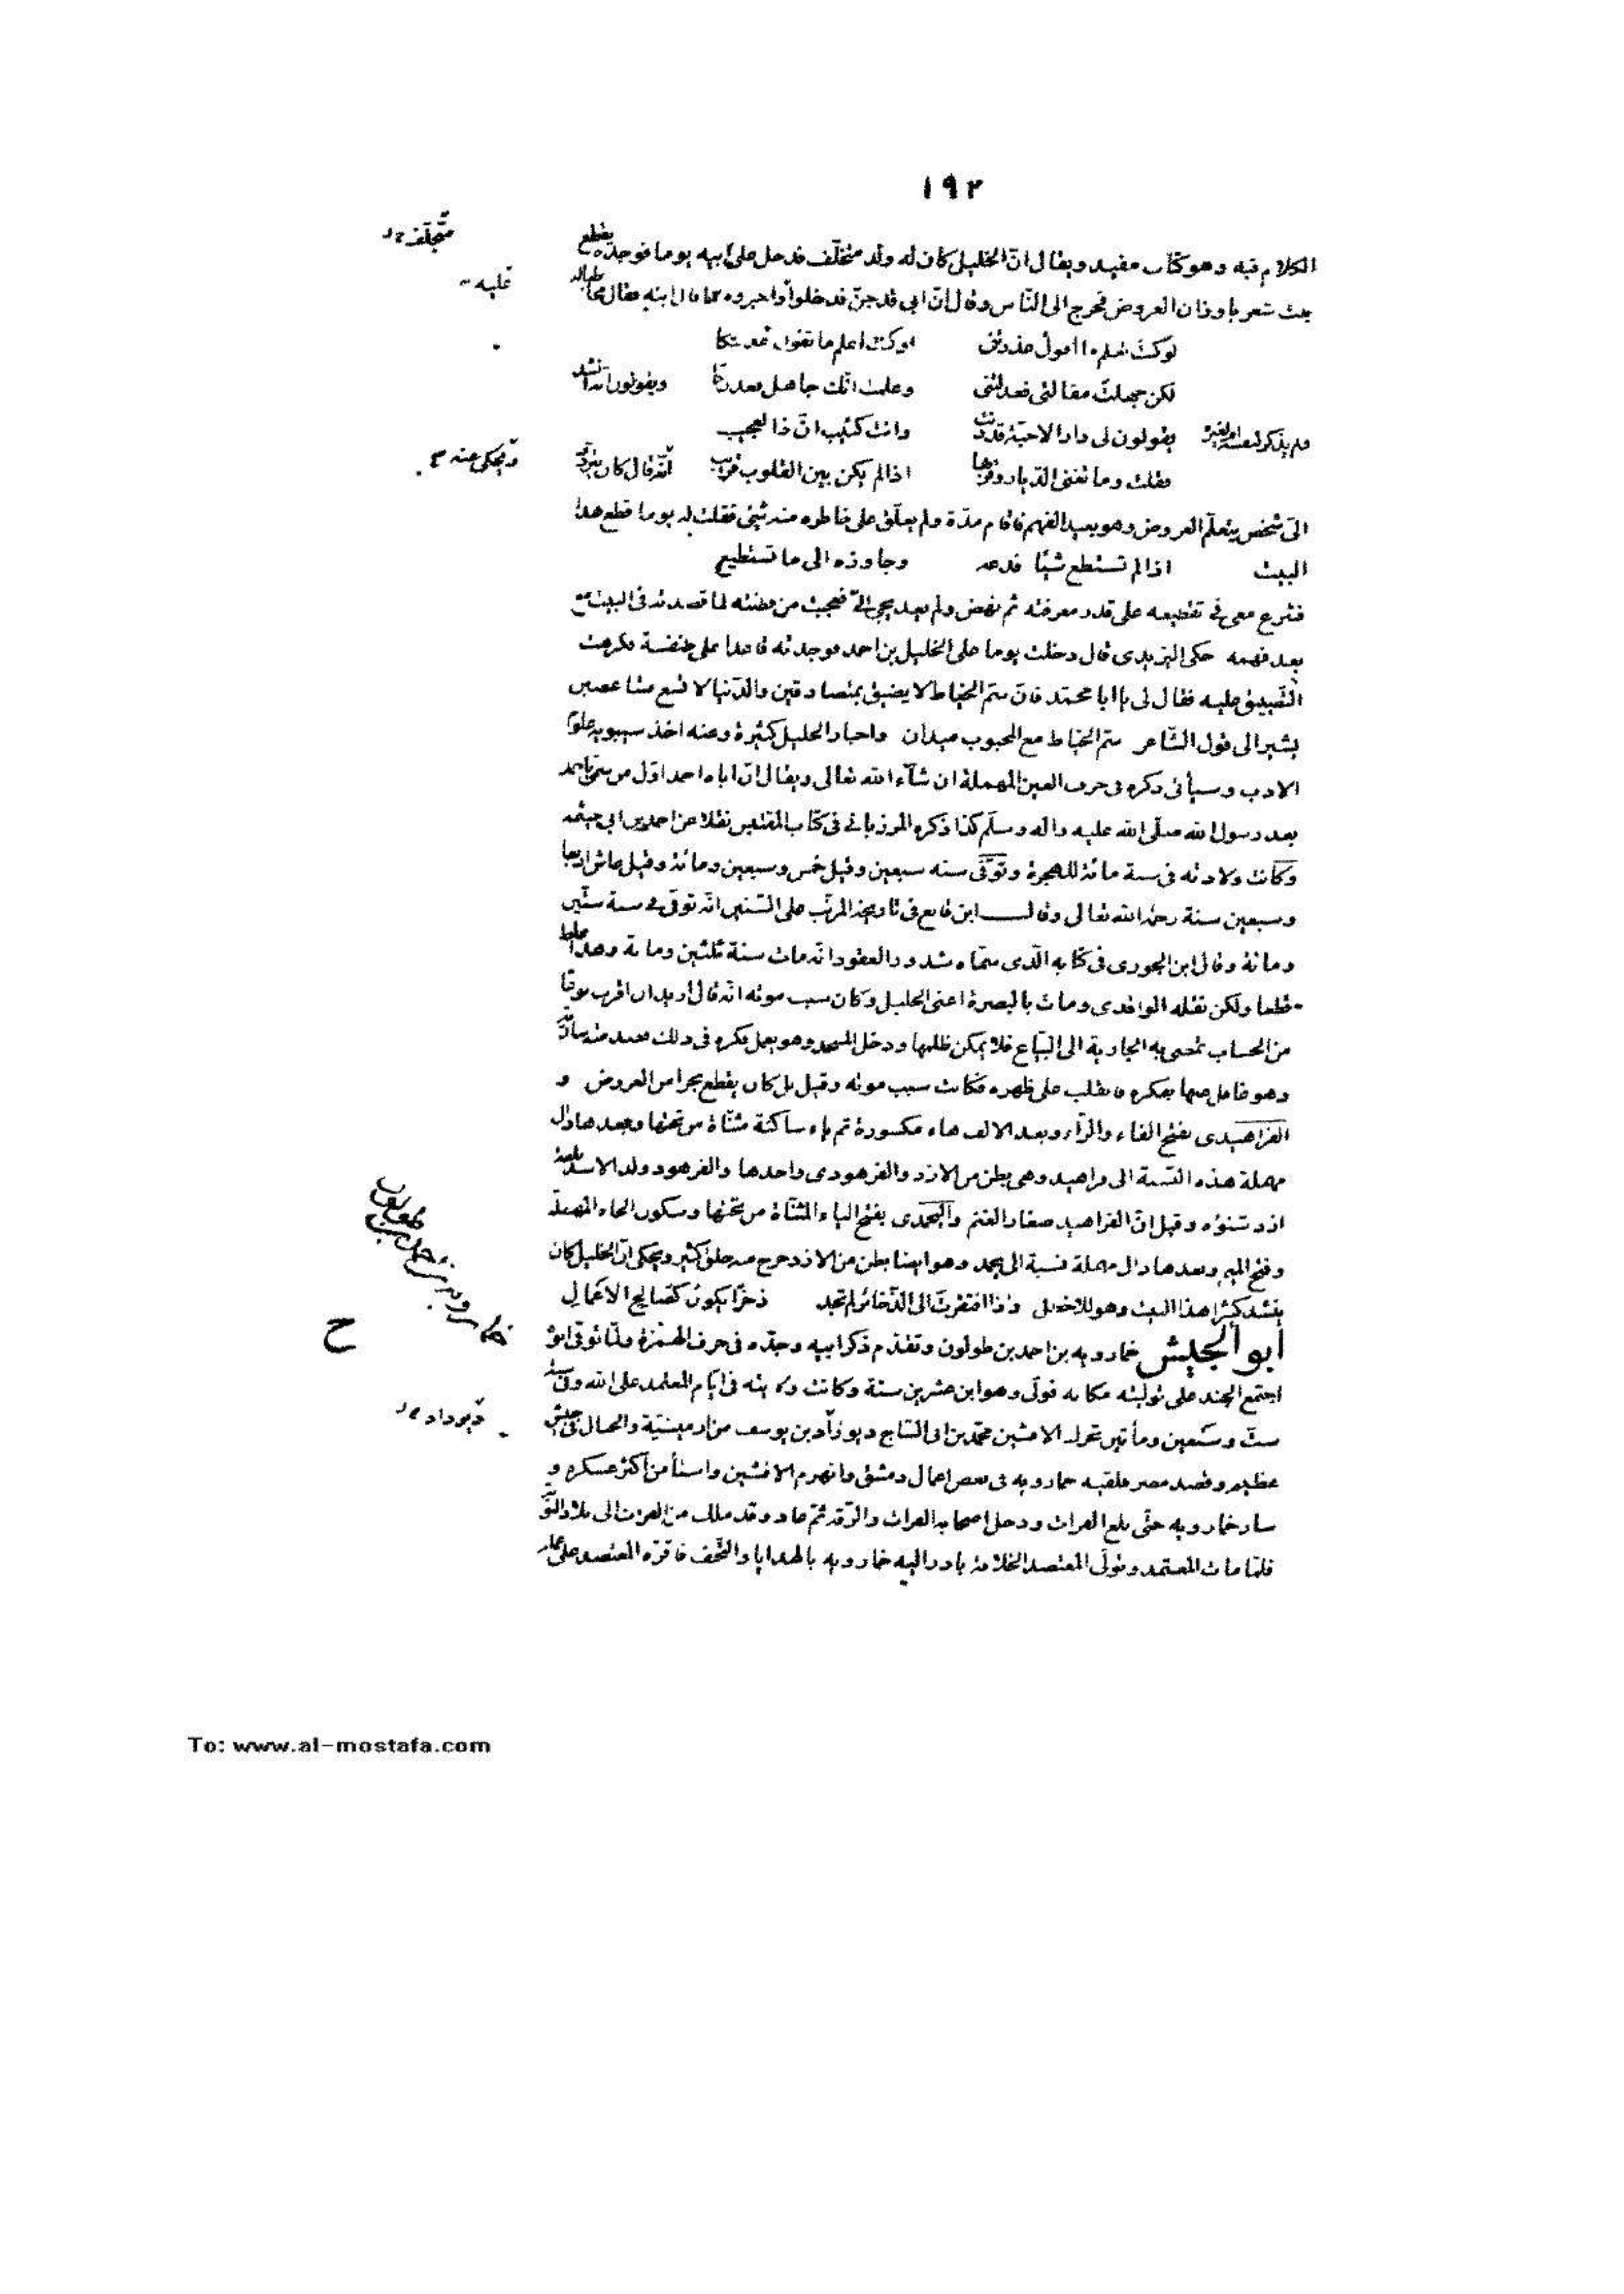 ١٩٢
الكلام فيه وهو كتاب مفيد ويقال انّ الخليل كان له ولد متخلّف فدخل على ابيه يوما فوجده يقطع
متخلّف
بيت شعر باوزان العروض فخرج الى النّاس وقال انّ ابى قد جنّ فدخلوا واخبروه بما قال ابنه فقال مخاطبا له
عليه
لو كنت تعلم ما اقول عذرتنى اوكنت اعلم ما تقول عذلتكا
لكن جهلت مقالتى فعذلتنى وعلمت انّك جاهل فعذرتكا ويقولون انّه انشد
ولم يذكر لنفسه ام لغيره يقولون لى دار الاحبّة قد دنت وانت كئيب انّ ذا لعجيب
فقلت وما تغنى الدّيار وقربها اذا لم يكن بين القلوب قريب انّه قال كان يتردّد
ويحكى عنه
الىّ شخص يتعلّم العروض وهو بعيد الفهم فاقام مدّة ولم يعلق على خاطره منه شئ فقلت له يوما قطع هذا
البيت اذا لم تستطع شيئا فدعه وجاوزه الى ما تستطيع
فشرع معى فى تقطيعه على قدر معرفته ثم نهض ولم يعد يجئ الىّ فعجبت من فطنته لما قصدته فى البيت مع
بعد فهمه حكى اليزيدى قال دخلت يوما على الخليل بن احمد فوجدته قاعدا على طنفسة فكرهت
التّضييق عليه فقال لى يا ابا محمّد فانّ سمّ الخياط لا يضيق بمتصادقين والدّنيا لا تسع متباغضين
يشير الى قول الشّاعر سمّ الخياط مع المحبوب ميدان واخبار الخليل كثيرة وعنه اخذ سيبويه علوم
الادب وسيأتى ذكره فى حرف العين المهملة ان شآء الله تعالى ويقال انّ اباه احمد اوّل من سمّى باحمد
بعد رسول الله صلّى الله عليه واله وسلّم كذا ذكره المرزبانى فى كتاب المقتبس نقلا عن احمد بن ابى خيثمه
وكانت ولادته فى سنة مائة للهجرة وتوفّى سنه سبعين وقيل خمس وسبعين ومائة وقيل عاش اربعا
وسبعين سنة رحمه الله تعالى وقال ابن قانع فى تاريخه المرتّب على السّنين انّه توفّى فى سنة ستّين
ومائة وقال ابن الجوزى فى كتابه الّذى سمّاه شذور العقود انّه مات سنة ثلثين ومائة وهذا غلط
قطعا ولكن نقله الواقدى ومات بالبصرة اعنى الخليل وكان سبب موته انّه قال اريد ان اقرب نوعا
من الحساب تمضى به الجارية الى البيّاع فلا يمكن ظلمها ودخل المسجد وهو يعمل فكره فى ذلك فصدمته سارية
وهو غافل عنها بفكره فانقلب على ظهره فكانت سبب موته وقيل بل كان يقطع بحرا من العروض و
الفراهيدى بفتح الفاء والرّاء وبعد الالف هاء مكسورة ثم ياء ساكنة مثنّاة من تحتها وبعدها دال
مهملة هذه النّسبة الى فراهيد وهى بطن من الازد والفرهودى واحدها والفرهود ولد الاسد بلغة
ازد شنؤه وقيل انّ الفراهيد صغار الغنم واليحمدى بفتح الياء المثنّاة من تحتها وسكون الحاء المهملة
وفتح الميم وبعدها دال مهملة نسبة الى يحمد وهو ايضا بطن من الازد خرج منه خلق كثير ويحكى انّ الخليل كان
ينشد كثيرا هذا البيت وهو للاخطل واذا افتقرت الى الذّخائر لم تجد ذخرا يكون كصالح الاعمال
خمارويه بن احمد بن طولون
ح
أبو الجيش خمارويه بن احمد بن طولون وتقدّم ذكر ابيه وجدّه فى حرف الهمزة ولمّا توفّى ابوه
اجتمع الجند على توليته مكانه فولّى وهو ابن عشرين سنة وكانت ولايته فى ايّام المعتمد على الله وفى سنة
ستّ وسبعين ومأتين تحرك الافشين محمّد بن ابى السّاج ديوزآد بن يوسف من ارمينيّة والجبال فى جيش
ديوداد
عظيم وقصد مصر فلقيه خمارويه فى بعض اعمال دمشق وانهزم الافشين واستأمن اكثر عسكره و
سار خمارويه حتّى بلغ الفرات ودخل اصحابه الفرات والرّقة ثمّ عاد وقد ملك من الفرات الى بلاد النّوبة
فلمّا مات المعتمد وتولّى المعتضد الخلافة بادر اليه خمارويه بالهدايا والتّحف فاقرّه المعتضد على عمله
To: www.al-mostafa.com